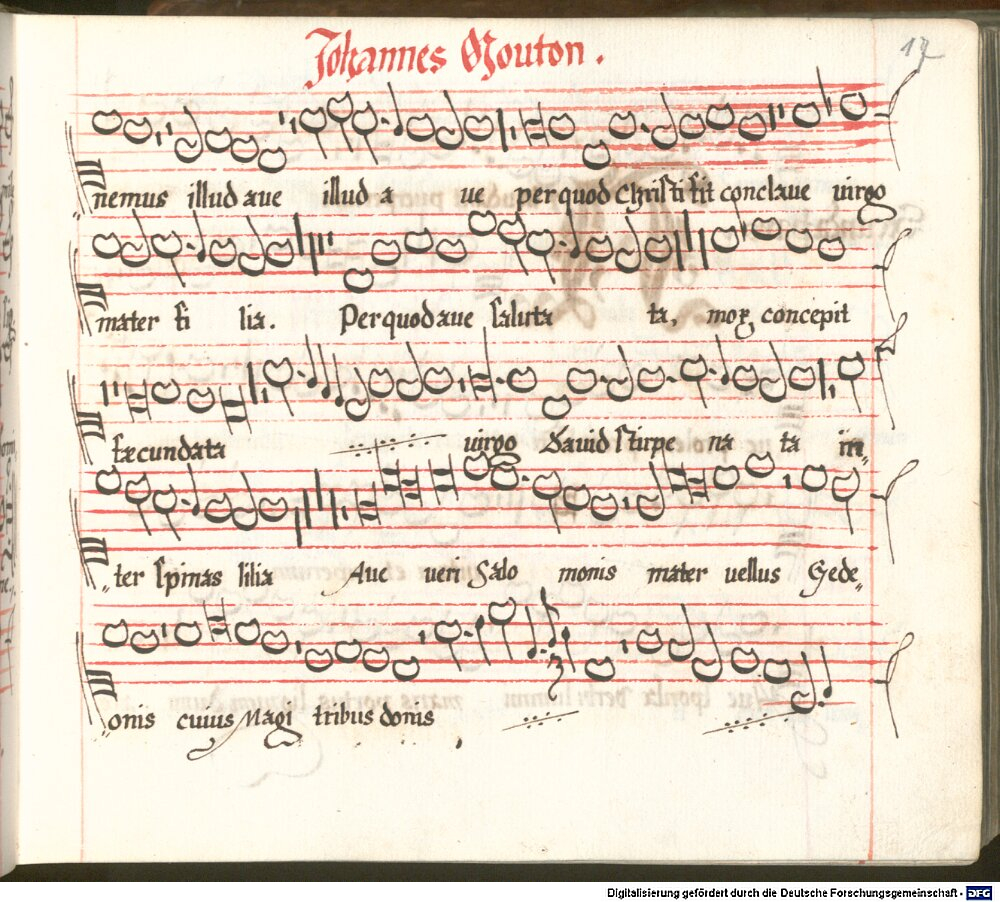 Johannes Mouton.
17
nemus illud ave illud a ve per quod Christi fit conclave virgo
mater fi lia. Per quod ave saluta ta, mox concepit
fæcundata virgo David stirpe na ta in„
„ter spinas lilia Ave veri Salo monis mater vellus Gede„
„onis cuius Magi tribus donis
Digitalisierung gefördert durch die Deutsche Forschungsgemeinschaft - DFG